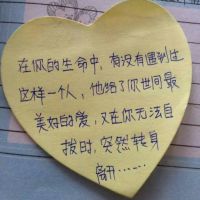 在你的生命中，有没有遇到过
这样一个人，他给了你世间最
美好的爱，又在你无法自
拨时，突然转身
离开……